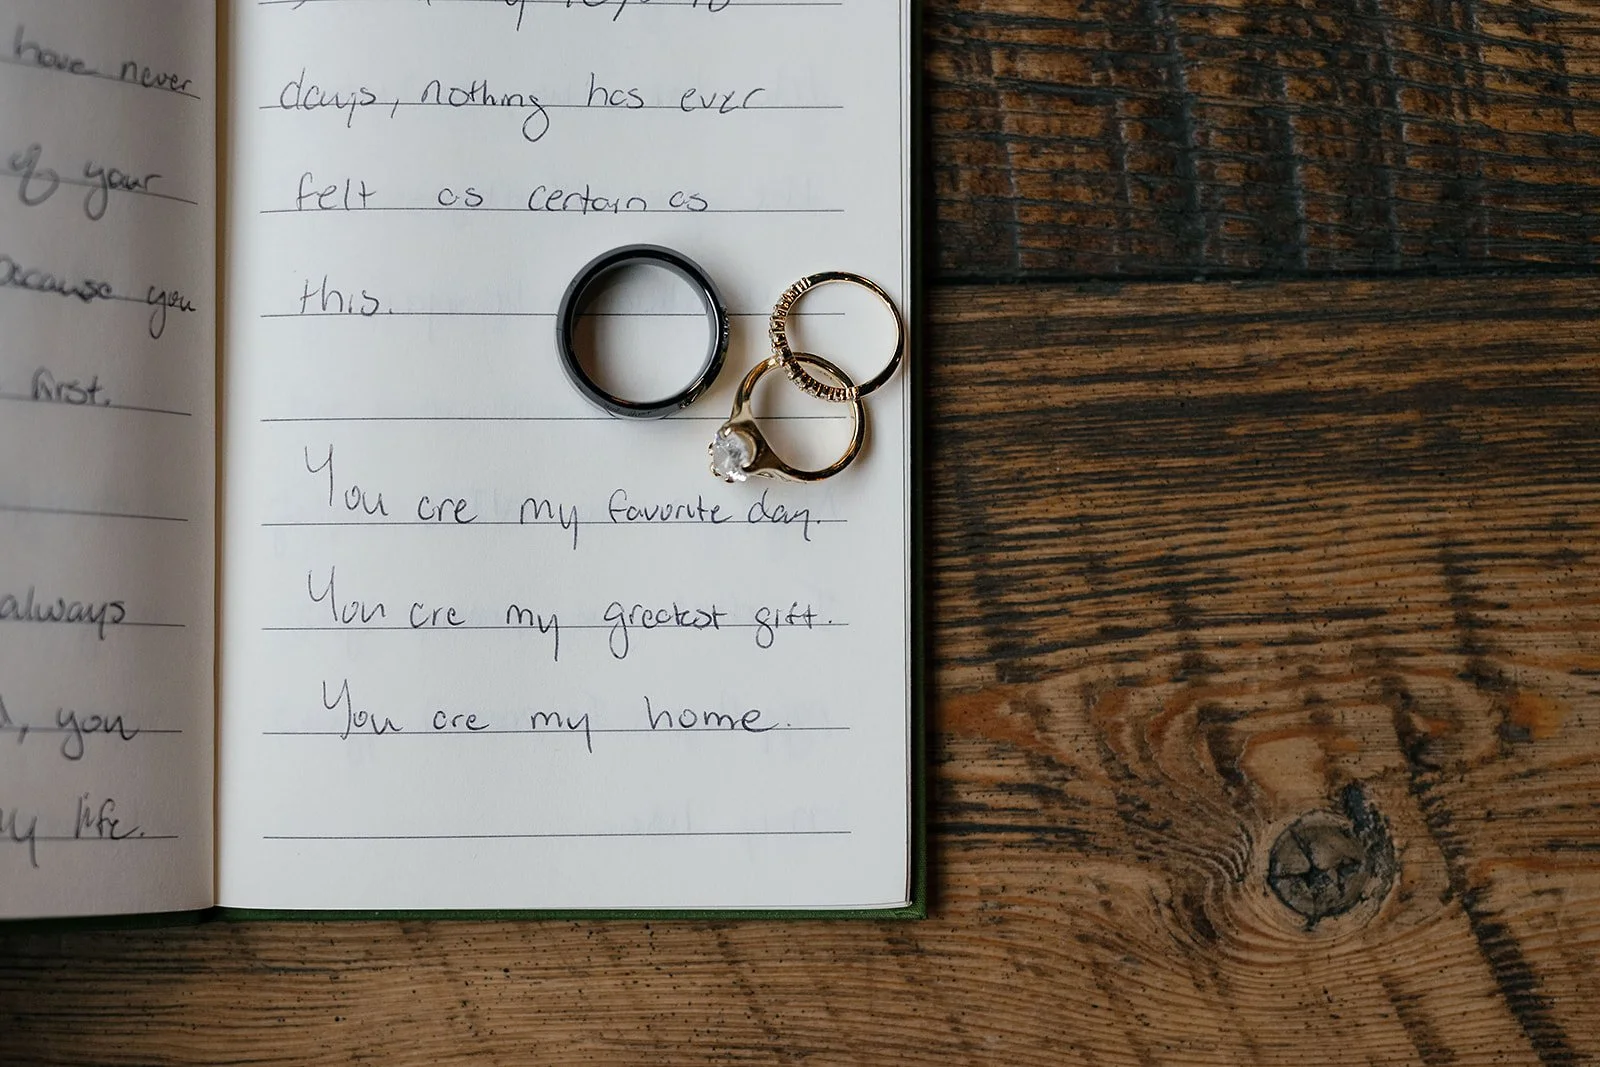 have never
of your
because you
first.
always
, you
my life.
days, nothing has ever
felt as certain as
this.
You are my favorite day.
You are my greatest gift.
You are my home.